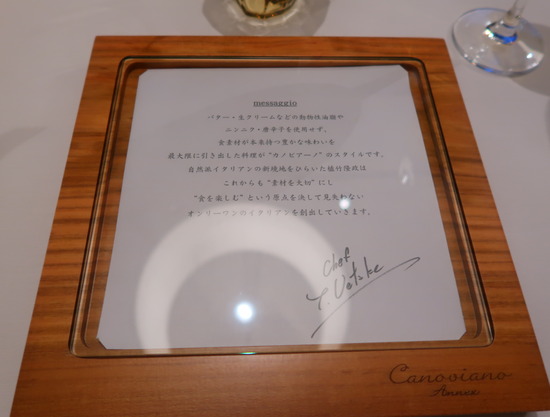 messaggio
バター・生クリームなどの動物性油脂や
ニンニク・唐辛子を使用せず、
食素材が本来持つ豊かな味わいを
最大限に引き出した料理が“カノビアーノ”のスタイルです。
自然派イタリアンの新境地をひらいた植竹隆政は
これからも“素材を大切”にし
“食を楽しむ”という原点を決して見失わない
オンリーワンのイタリアンを創出していきます。
Chef
T. Uetake
Canoviano
Annex